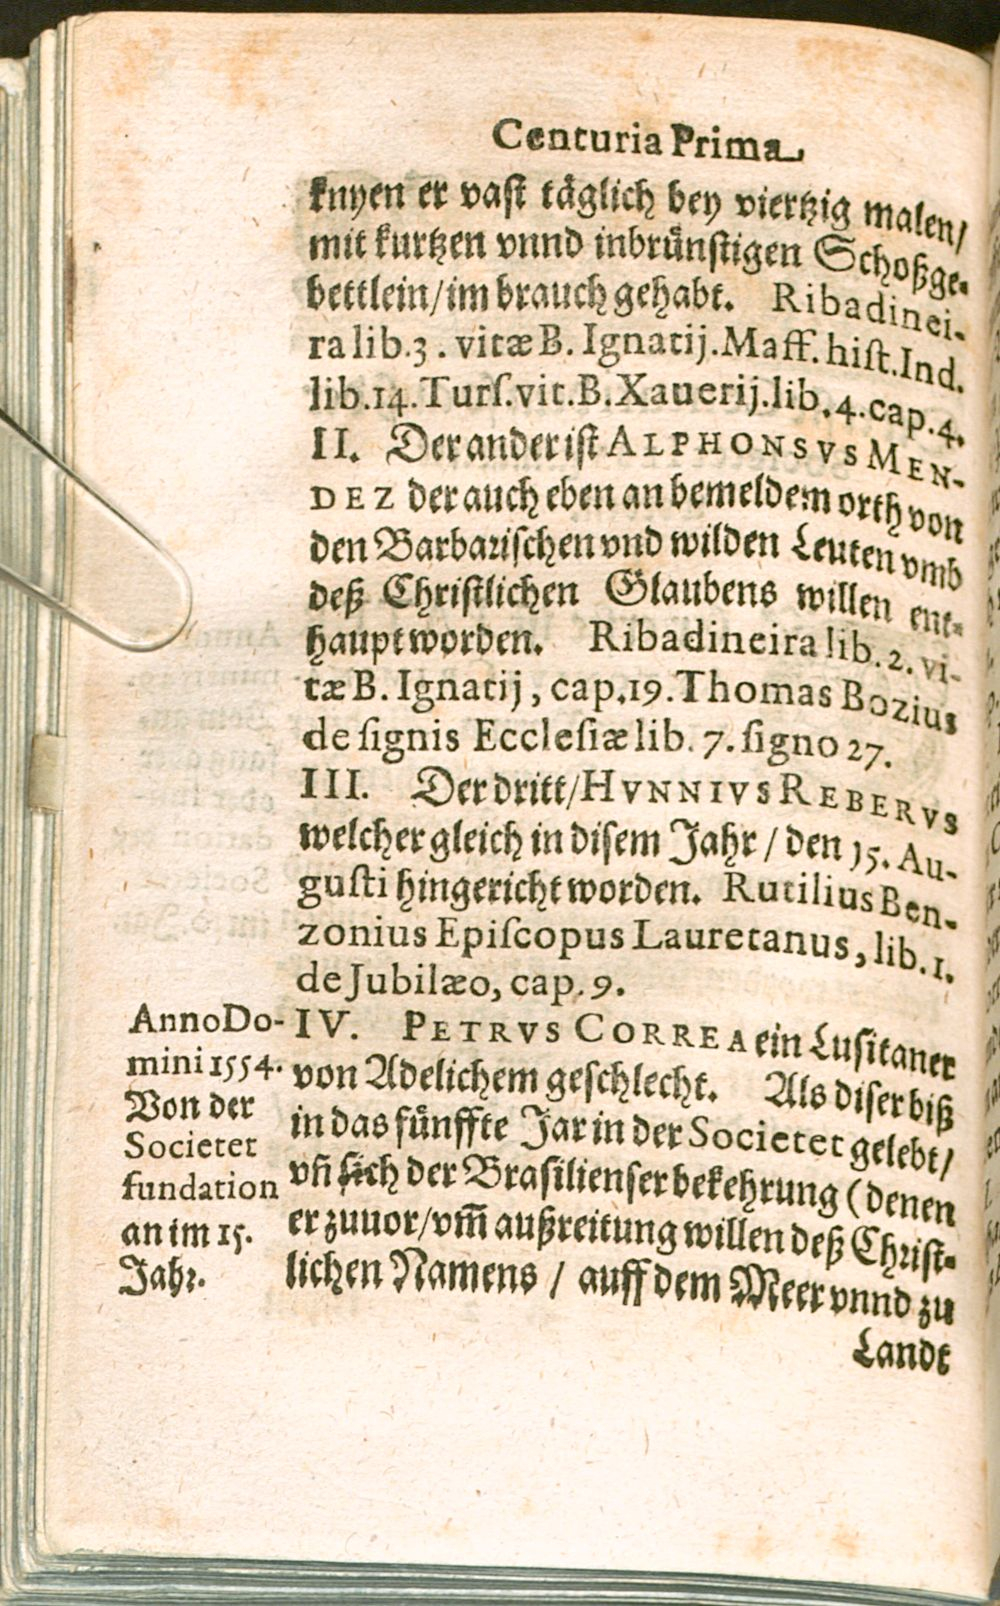 Centuria Prima
knyen er vast täglich bey viertzig malen/
mit kurtzen vnnd inbrünstigen Schoßge-
bettlein/im brauch gehabt. Ribadinei-
ra lib.3. vitæ B. Ignatij. Maff. hist. Ind.
lib.14. Turs. vit. B. Xauerij. lib. 4. cap. 4.
II. Der ander ist ALPHONSVS MEN-
DEZ der auch eben an bemeldem orth von
den Barbarischen vnd wilden Leuten vmb
deß Christlichen Glaubens willen ent-
haupt worden. Ribadineira lib. 2. vi-
tæ B. Ignatij, cap.19. Thomas Bozius
de signis Ecclesiæ lib. 7. signo 27.
III. Der dritt/HVNNIVS REBERVS
welcher gleich in disem Jahr / den 15. Au-
gusti hingericht worden. Rutilius Ben-
zonius Episcopus Lauretanus, lib. 1.
de Jubilæo, cap. 9.
Anno Do-
mini 1554.
Von der
Societet
fundation
an im 15.
Jahr.
IV. PETRVS CORREA ein Lusitaner
von Adelichem geschlecht. Als diser biß
in das fünffte Jar in der Societet gelebt/
vñ sich der Brasilienser bekehrung (denen
er zuuor/vm̃ außreitung willen deß Christ-
lichen Namens / auff dem Meer vnnd zu
Landt